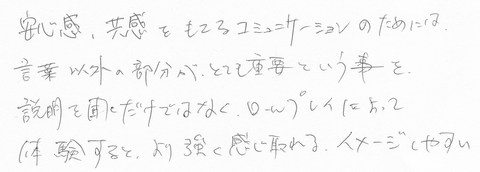 安心感、共感をもてるコミュニケーションのためには、
言葉以外の部分が、とても重要という事を、
説明を聞くだけではなく、ロールプレイによって
体験すると、より強く感じ取れる、イメージしやすい